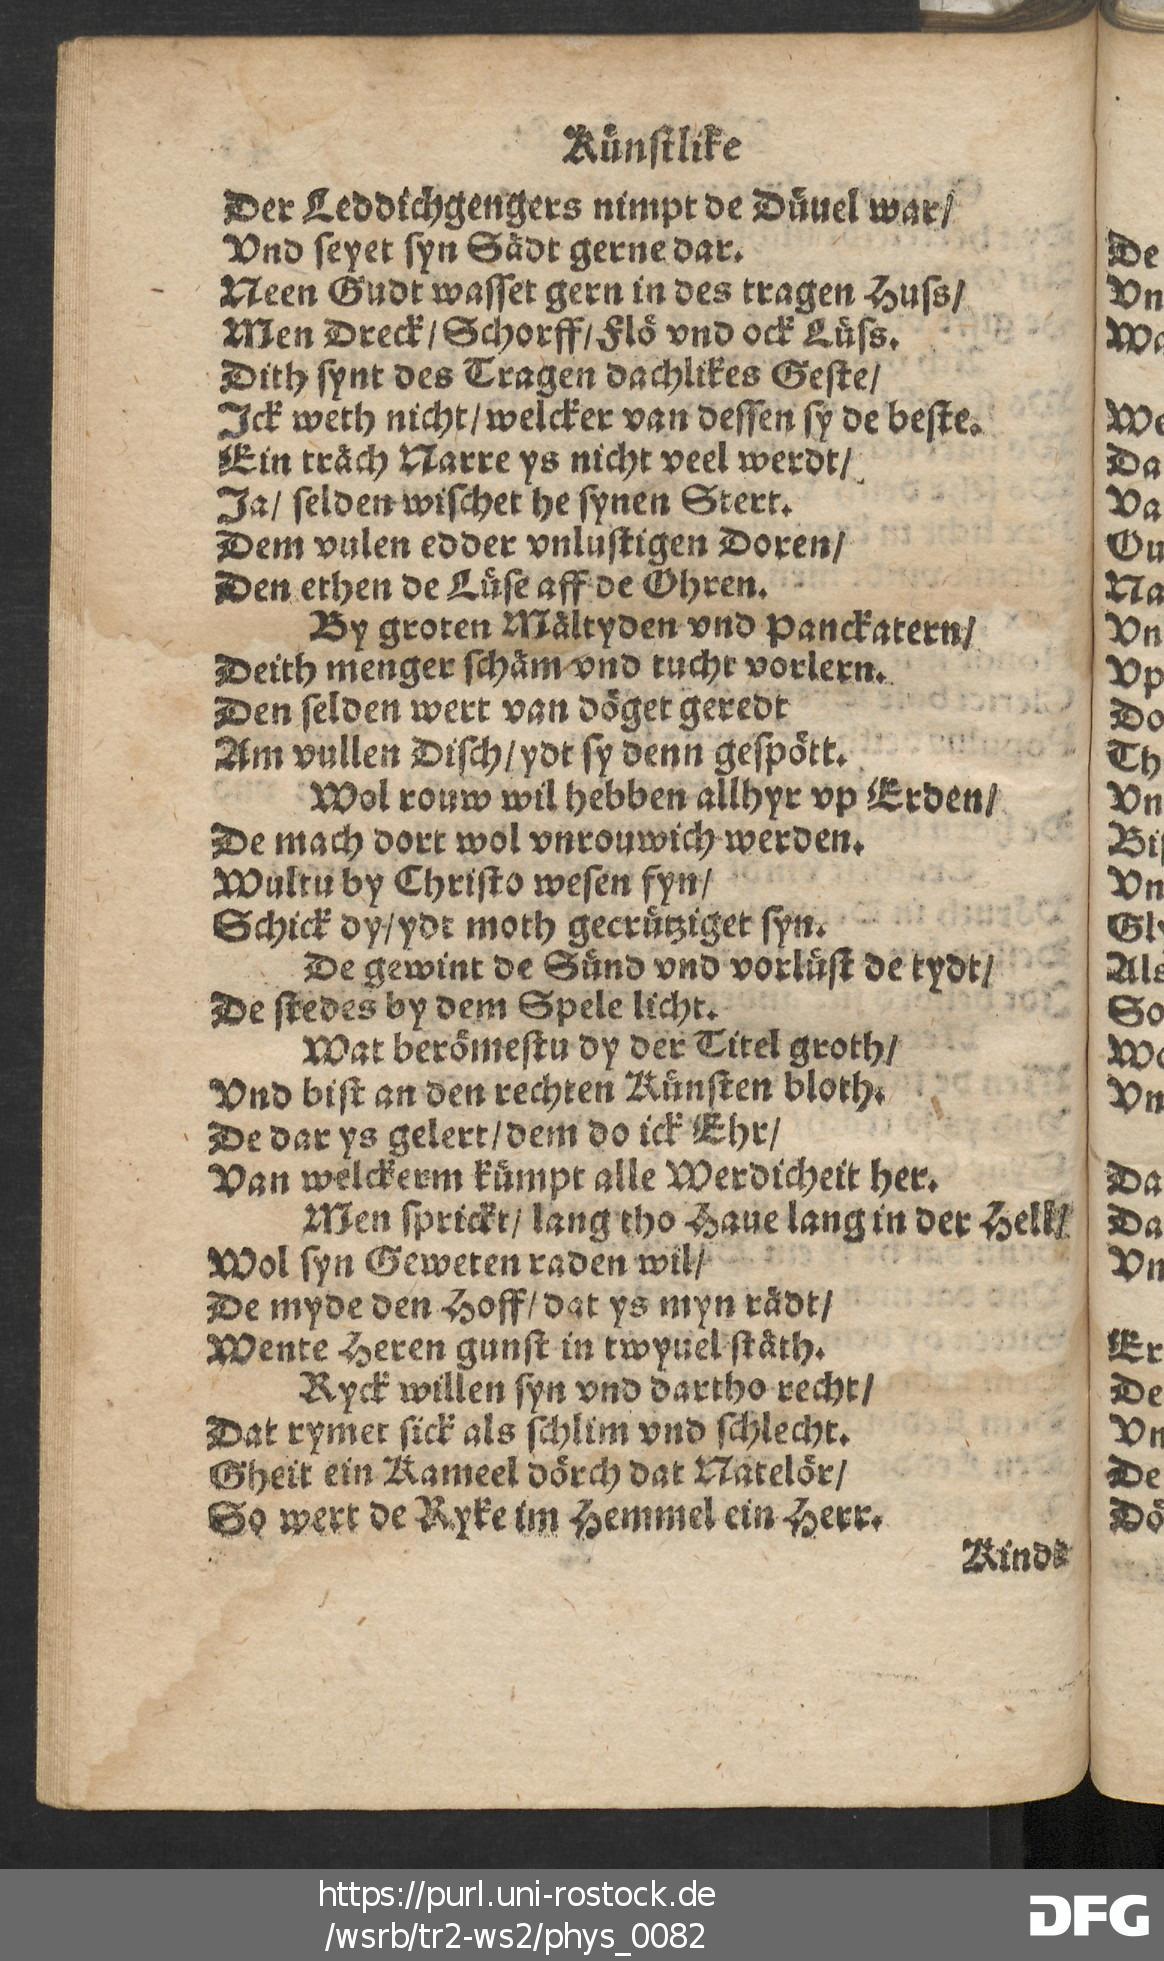 Künstlike
Der Leddichgengers nimpt de Düuel war/
Vnd seyet syn Sädt gerne dar.
Neen Gudt wasset gern in des tragen Huss/
Men Dreck/ Schorff/ Flö vnd ock Lüss.
Dith synt des Tragen dachlikes Geste/
Jck weth nicht/ welcker van dessen sy de beste.
Ein träch Narre ys nicht veel werdt/
Ja/ selden wischet he synen Stert.
Dem vulen edder vnlustigen Doren/
Den ethen de Lüse aff de Ohren.
By groten Mältyden vnd Panckatern/
Deith menger schäm vnd tucht vorlern.
Den selden wert van döget geredt
Am vullen Disch/ ydt sy denn gespött.
Wol rouw wil hebben allhyr vp Erden/
De mach dort wol vnrouwich werden.
Wultu by Christo wesen fyn/
Schick dy/ ydt moth gecrütziget syn.
De gewint de Sünd vnd vorlüst de tydt/
De stedes by dem Spele licht.
Wat berömestu dy der Titel groth/
Vnd bist an den rechten Künsten bloth.
De dar ys gelert/ dem do ick Ehr/
Van welckerm kümpt alle Werdicheit her.
Men sprickt/ lang tho Haue lang in der Hell/
Wol syn Geweten raden wil/
De myde den Hoff/ dat ys myn rädt/
Wente Heren gunst in twyuel stäth.
Ryck willen syn vnd dartho recht/
Dat rymet sick als schlim vnd schlecht.
Gheit ein Kameel dörch dat Natelör/
So wert de Ryke im Hemmel ein Herr.
Kinde
De
Vn
Wa
We
Da
Va
Ou
Na
Vn
Vp
Do
Th
Vn
Bis
Vn
Gly
Als
So
Wo
Vn
Da
Da
Vn
Er
De
Vn
De
Dö
https://purl.uni-rostock.de
/wsrb/tr2-ws2/phys_0082
DFG